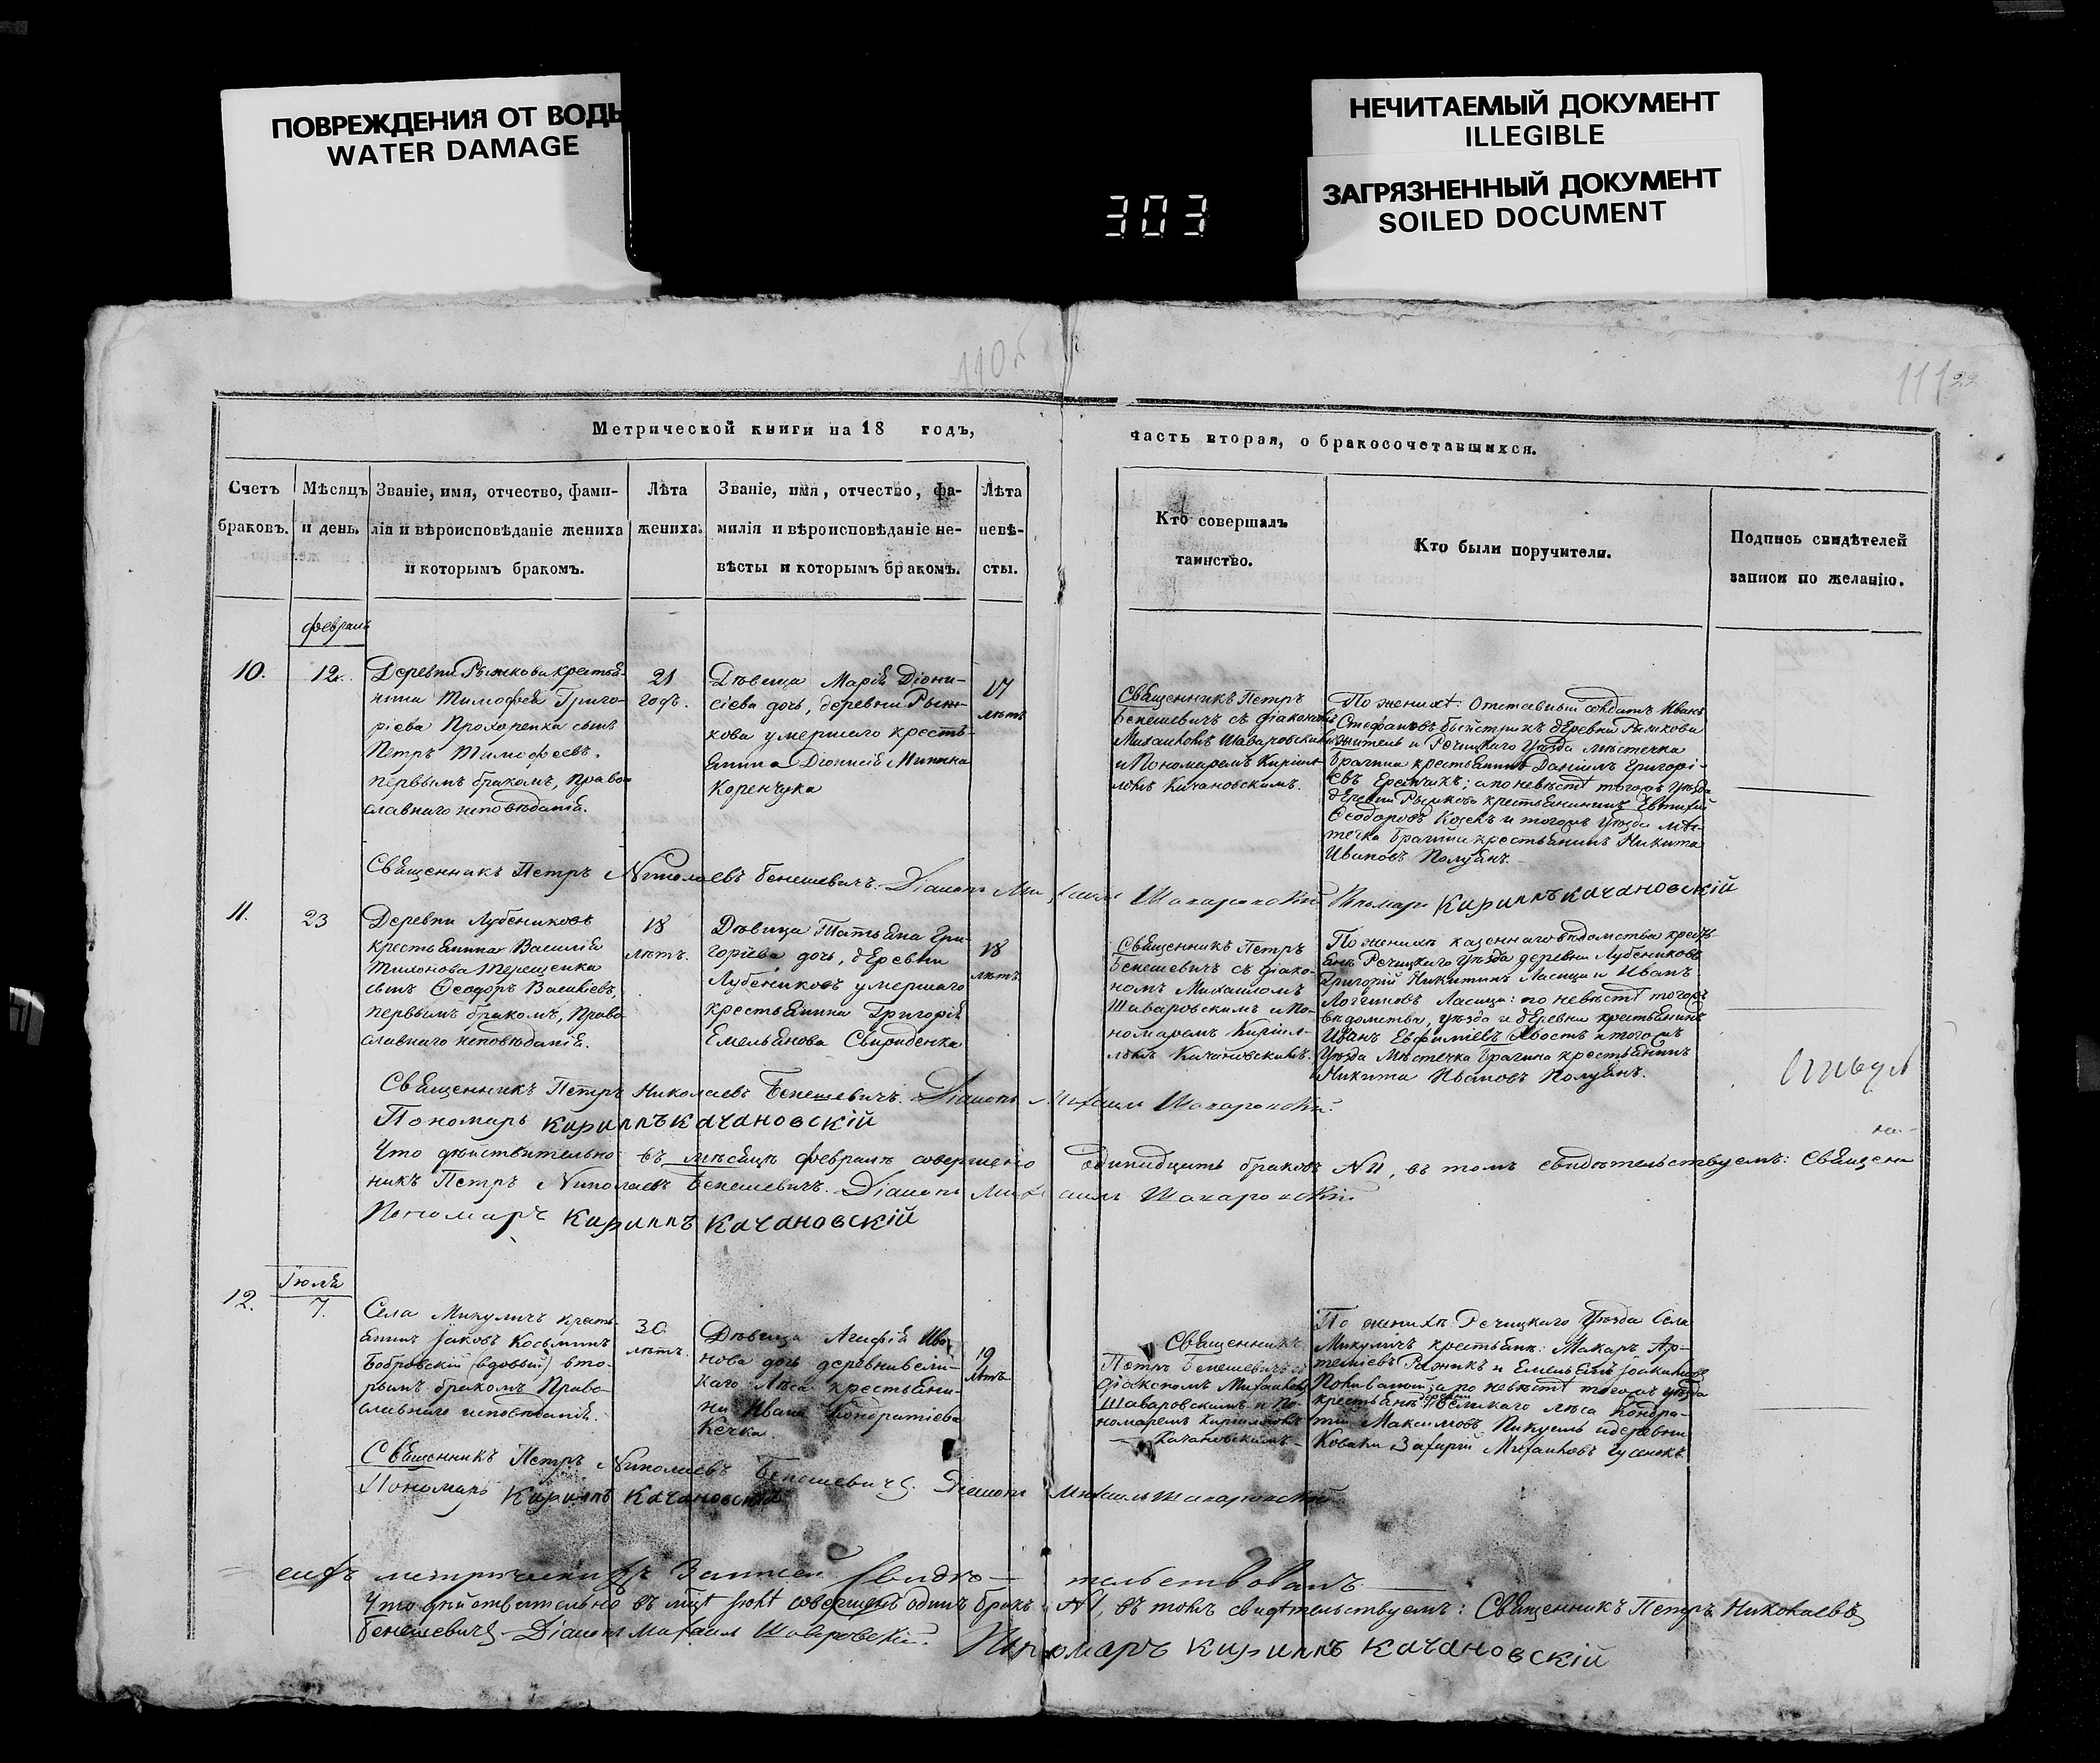 ПОВРЕЖДЕНИЯ ОТ ВОДЫ
WATER DAMAGE
НЕЧИТАЕМЫЙ ДОКУМЕНТ
ILLEGIBLE
ЗАГРЯЗНЕННЫЙ ДОКУМЕНТ
SOILED DOCUMENT
303
110
111
22
Метрической книги на 18 годъ,
часть вторая, о бракосочетавшихся.
Счетъ
браковъ.
Мѣсяцъ
и день.
Званіе, имя, отчество, фами-
лія и вѣроисповѣданіе жениха
и которымъ бракомъ.
Лѣта
жениха.
Званіе, имя, отчество, фа-
милія и вѣроисповѣданіе не-
вѣсты и которымъ бракомъ.
Лѣта
невѣ-
сты.
Кто совершалъ
таинство.
Кто были поручители.
Подпись свидѣтелей
записи по желанію.
Февраль
10.
12.
Деревни Рыжкова крестья-
нина Тимофея Григо-
ріева Прохоренка сынъ
Петръ Тимофеевъ,
первымъ бракомъ, право-
славнаго исповѣданія.
21
годъ.
Дѣвица Марія Діони-
сіева дочь, деревни Рыж-
кова умершаго кресть-
янина Діонисія Минина
Коренчука
17
лѣтъ
Священникъ Петръ
Бенешевичъ съ діакономъ
Михаиломъ Шаваровскимъ
и Пономаремъ Кирил-
ломъ Качановскимъ.
По женихѣ: Отставный солдатъ Иванъ
Стефановъ Быстрикъ деревни Рыжкова
житель и Речицкаго Уѣзда мѣстечка
Брагина крестьянинъ Даніилъ Григорі-
евъ; а по невѣстѣ тогожъ Уѣзда
деревни Рыжкова крестьянинъ Евтихій
Ѳеодоровъ Козекъ и тогожъ Уѣзда мѣс-
течка Брагина крестьянинъ Никита
Ивановъ Полуянъ.
Священникъ Петръ Николаевъ Бенешевичъ. Діаконъ Михаилъ Шаваровскій Пономарь Кириллъ Качановскій
11.
23
Деревни Лубениковъ
крестьянина Василія
Тихонова Терещенка
сынъ Ѳеодоръ Василіевъ,
первымъ бракомъ, Право-
славнаго исповѣданія.
18
лѣтъ.
Дѣвица Татьяна Гри-
горіева дочь, деревни
Лубениковъ умершаго
крестьянина Григорія
Емельянова Свириденка
18
лѣтъ
Священникъ Петръ
Бенешевичъ съ діако-
номъ Михаиломъ
Шаваровскимъ и По-
номаремъ Кирил-
ломъ Качановскимъ.
По женихѣ казеннаго вѣдомства кресть-
янъ Речицкаго Уѣзда деревни Лубениковъ
Григорій Никитинъ Ласица и Иванъ
Логгиновъ Ласица: по невѣстѣ тогожъ
вѣдомства, уѣзда и деревни крестьянинъ
Иванъ Евфиміевъ Хвостъ и тогожъ
Уѣзда Мѣстечка Брагина крестьянинъ
Никита Ивановъ Полуянъ.
Священникъ Петръ Николаевъ Бенешевичъ. Діаконъ Михаилъ Шаваровскій.
Пономарь Кириллъ Качановскій
Что дѣйствительно въ мѣсяцѣ Февралѣ совершено одинадцать браковъ N 11, въ томъ свидѣтельствуемъ: Священ-
никъ Петръ Николаевъ Бенешевичъ. Діаконъ Михаилъ Шаваровскій.
Пономарь Кириллъ Качановскій
Іюля
12.
7.
Села Микуличъ кресть-
янинъ Іаковъ Косьминъ
Бобровскій (вдовый) вто-
рымъ бракомъ Право-
славнаго исповѣданія.
30
лѣтъ.
Дѣвица Агафія Ива-
нова дочь деревни Вели-
каго Лѣса крестьяни-
на Ивана Кондратіева
Кечка.
19
лѣтъ
Священникъ
Петръ Бенешевичъ съ
діакономъ Михаиломъ
Шаваровскимъ и По-
номаремъ Кирилломъ
Качановскимъ
По женихѣ Речицкаго Уѣзда Села
Микуличъ крестьяне: Макаръ Ар-
теміевъ и Емельянъ Іоакимовъ
а по невѣстѣ тогожъ уѣзда
крестьяне деревни Великаго лѣса Кондра-
тій Максимовъ и деревни
Коваки Захарій Михаиловъ Гусенокъ.
Священникъ Петръ Николаевъ Бенешевичъ. Діаконъ Михаилъ Шаваровскій
Пономарь Кириллъ Качановскій
сихъ метрическихъ записей свидѣ- тельствовалъ
Что дѣйствительно въ мцѣ Іюлѣ совершенъ одинъ бракъ N 1, въ томъ свидѣтельствуемъ: Священникъ Петръ Николаевъ
Бенешевичъ Діаконъ Михаилъ Шаваровскій. Пономарь Кириллъ Качановскій